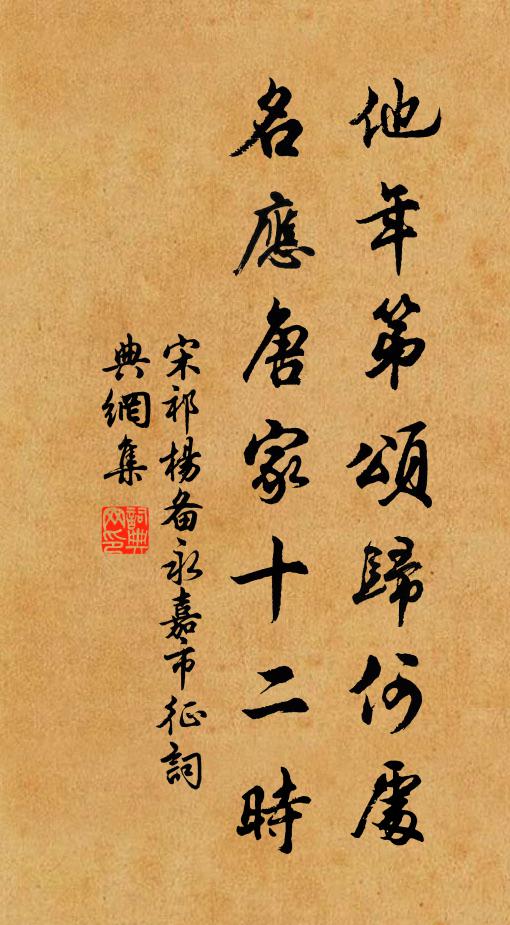 他年第頌歸何處
名應唐家十二時
宋祁楊备永嘉市征詞
典網集
詞典網印